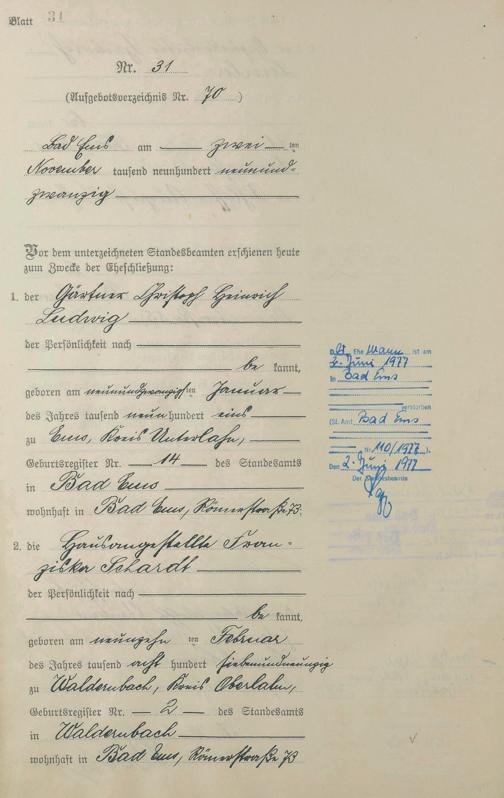 Blatt 31
Nr. 31
(Aufgebotsverzeichnis Nr. 70)
Bad Ems am zwei ten
November tausend neunhundert neunund-
zwanzig
Vor dem unterzeichneten Standesbeamten erschienen heute
zum Zwecke der Eheschließung:
1. der Gärtner Christoph Heinrich
Ludwig
der Persönlichkeit nach
be kannt,
geboren am neunundzwanzigsten Januar
des Jahres tausend neunhundert eins
zu Ems, Kreis Unterlahn,
Geburtsregister Nr. 14 des Standesamts
in Bad Ems
wohnhaft in Bad Ems, Römerstraße 73.
2. die Hausangestellte Fran-
ziska Schardt
der Persönlichkeit nach
be kannt,
geboren am neunzehn ten Februar
des Jahres tausend acht hundert siebenundneunzig
zu Waldernbach, Kreis Oberlahn,
Geburtsregister Nr. 2 des Standesamts
in Waldernbach
wohnhaft in Bad Ems, Römerstraße 73
Ehemann ist am
2. Juni 1977
in Bad Ems
verstorben
(St. Amt Bad Ems
Nr. 110/1977).
Den 2. Juni 1977
Der Standesbeamte